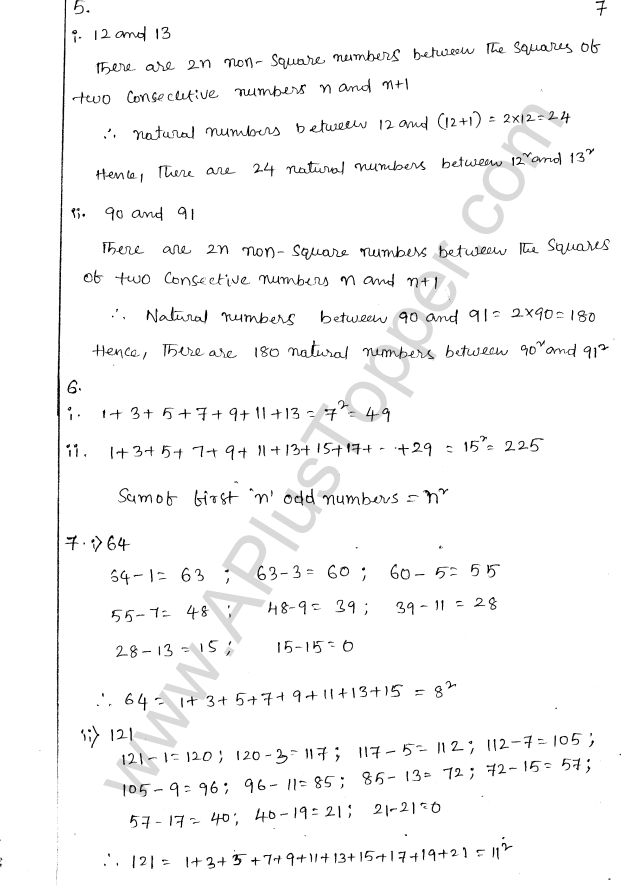 5.
7
i. 12 and 13
There are 2n non-square numbers between the squares of
two consecutive numbers n and n+1
∴ natural numbers between 12 and (12+1) = 2×12=24
Hence, There are 24 natural numbers between 12² and 13²
ii. 90 and 91
There are 2n non-square numbers between the squares
of two consective numbers n and n+1
∴ Natural numbers between 90 and 91 = 2×90=180
Hence, There are 180 natural numbers between 90² and 91²
6.
i. 1+3+5+7+9+11+13=7²=49
ii. 1+3+5+7+9+11+13+15+17+--+29 = 15²=225
Sum of first 'n' odd numbers = n²
7. i) 64
64-1= 63 ; 63-3= 60 ; 60-5=55
55-7= 48 ; 48-9= 39 ; 39-11=28
28-13=15 ; 15-15=0
∴ 64 = 1+3+5+7+9+11+13+15 = 8²
ii) 121
121-1=120 ; 120-3=117 ; 117-5=112 ; 112-7=105 ;
105-9=96 ; 96-11=85 ; 85-13=72 ; 72-15=57 ;
57-17=40 ; 40-19=21 ; 21-21=0
∴ 121 = 1+3+5+7+9+11+13+15+17+19+21=11²
www.APlusTopper.com